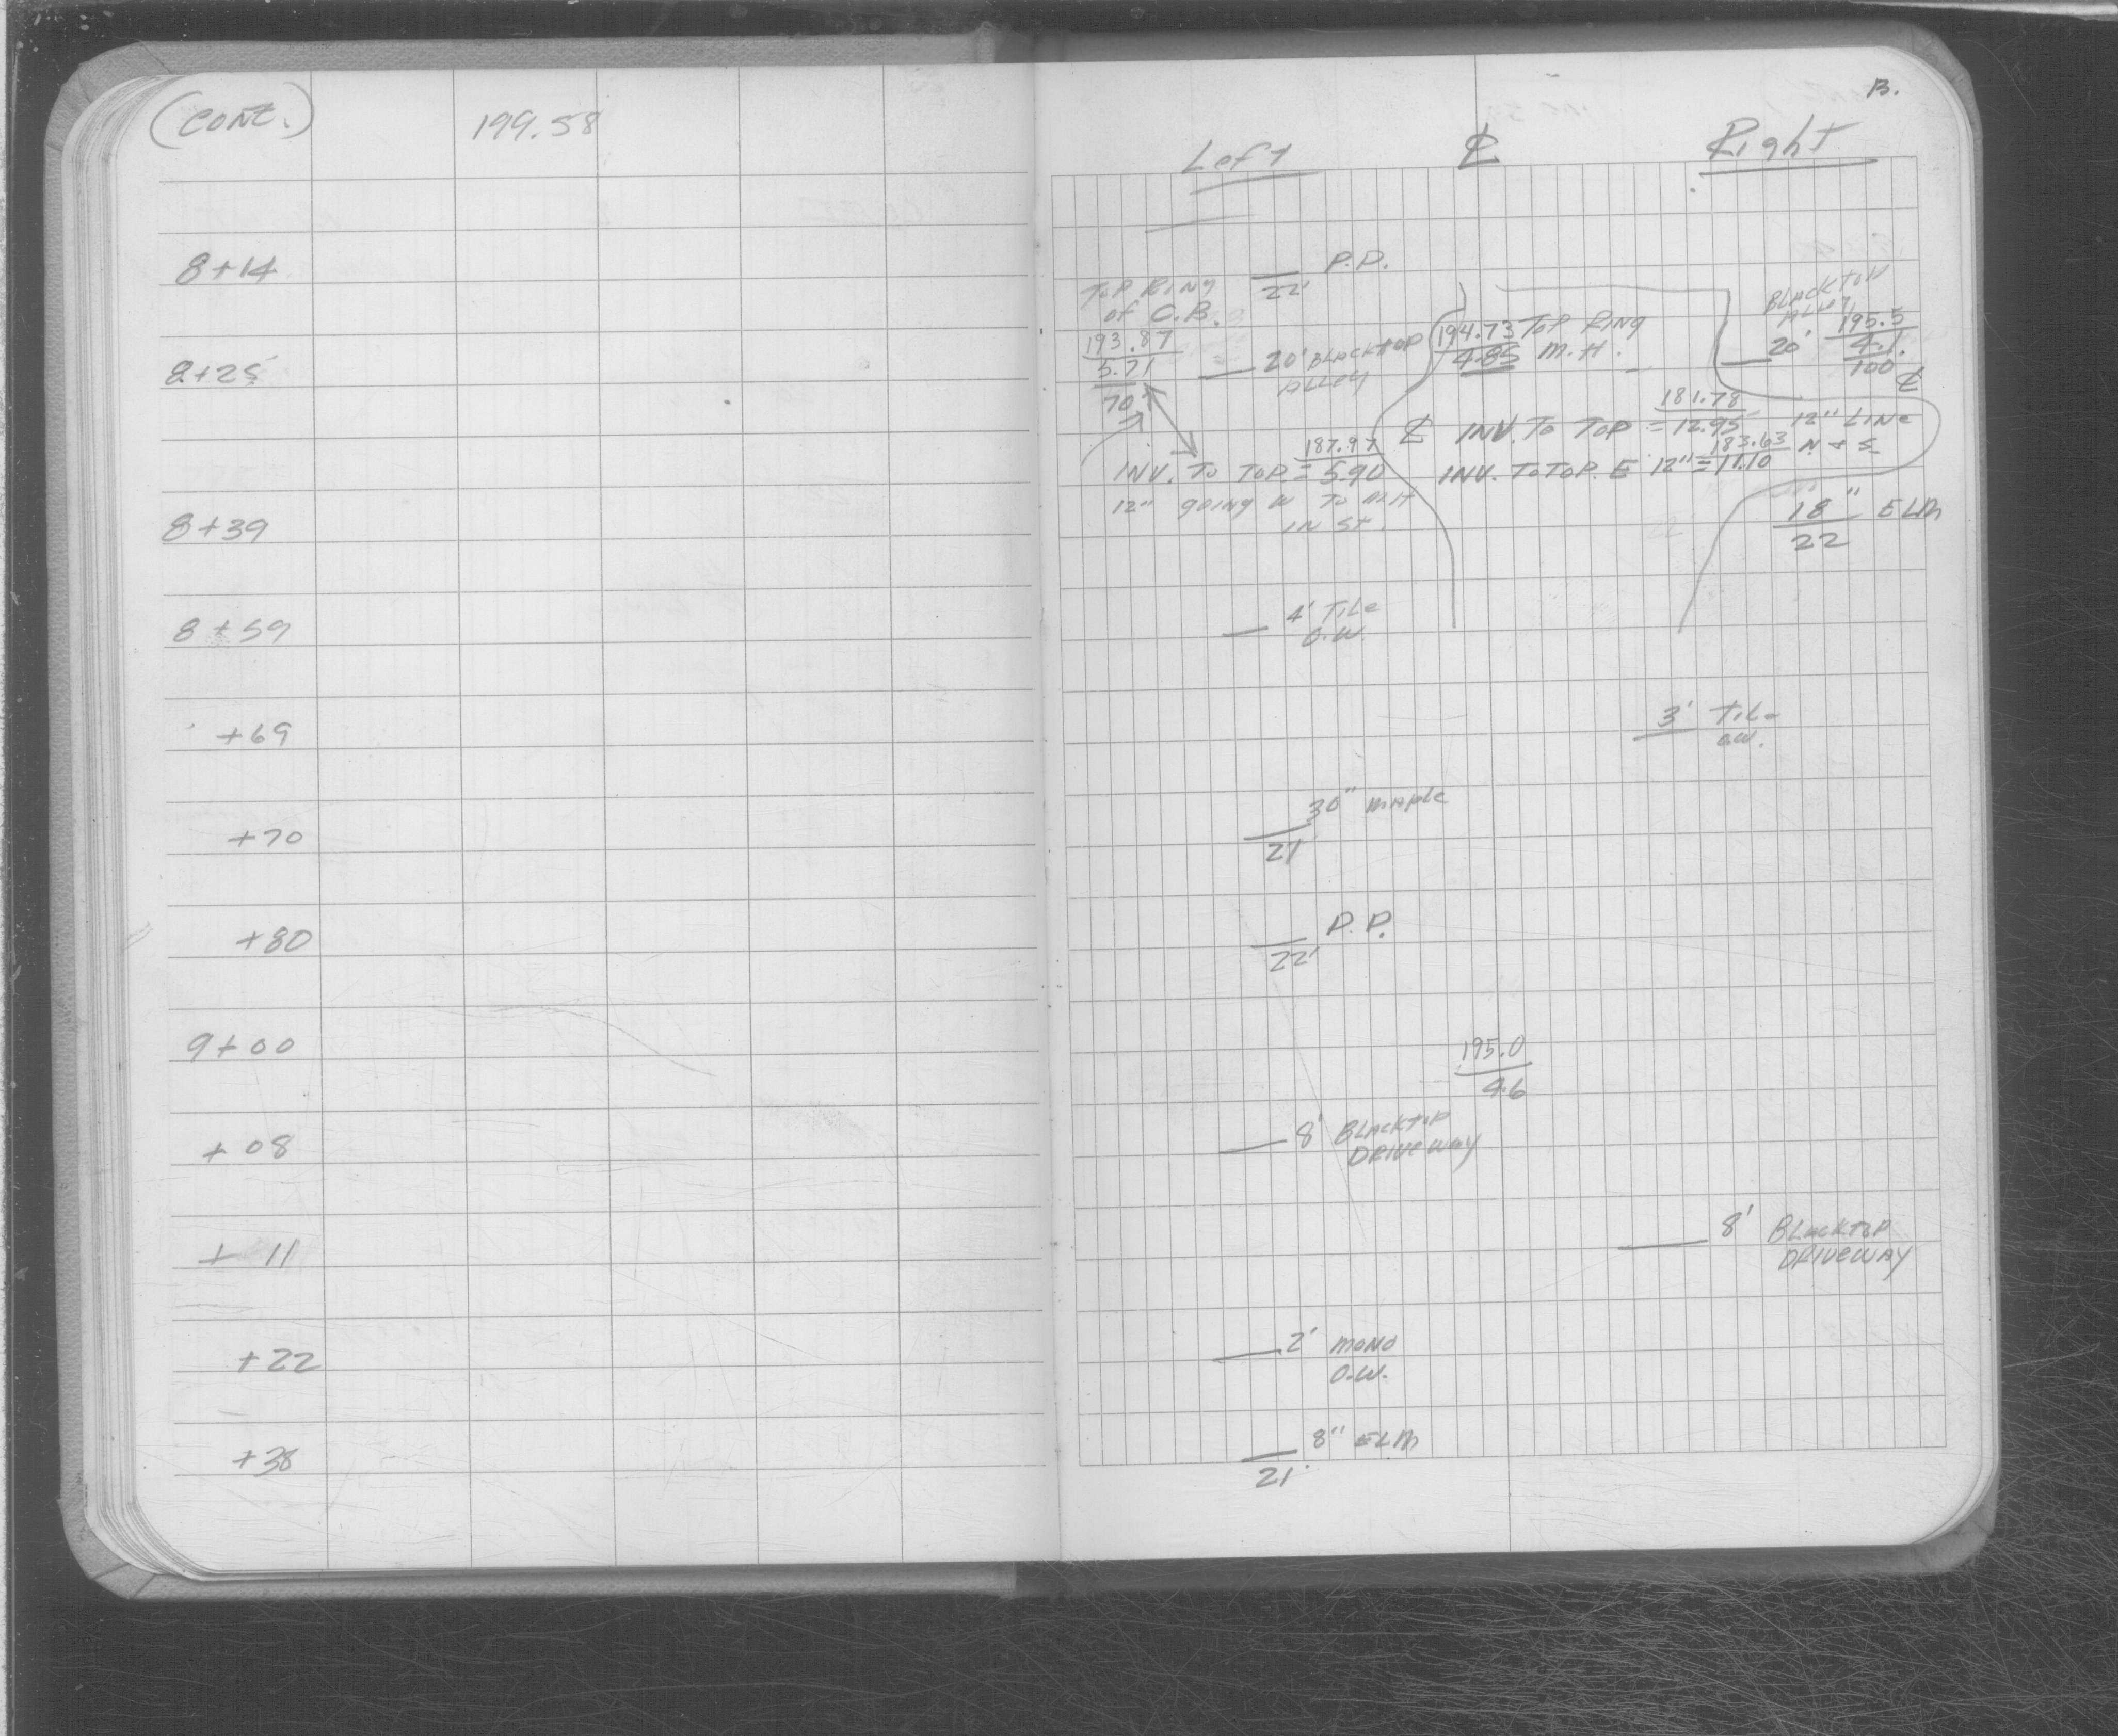 (CONT.) 199.58
B.
Left ℄ Right
8+14
P.P.
22'
TOP RING
of C.B.
193.87
5.71
70'
8+25
20' BLACKTOP
ALLEY
194.73 TOP RING
4.85 M.H.
BLACKTOP
ALY
20'
195.5
4.1
100 ℄
INV. TO TOP = 187.97
5.90
12" GOING W TO M.H
IN ST.
℄ INV. TO TOP = 181.78
12.95 12" LINE
N & S
INV. TO TOP. E 12" = 183.63
11.10
8+39
18" ELM
22
8+59
4' TILE
O.W.
+69
3' TILE
O.W.
+70
30" MAPLE
21'
+80
P.P.
22'
9+00
195.0
4.6
+08
8' BLACKTOP
DRIVEWAY
+11
8' BLACKTOP
DRIVEWAY
+22
2' MONO
O.W.
+38
8" ELM
21'